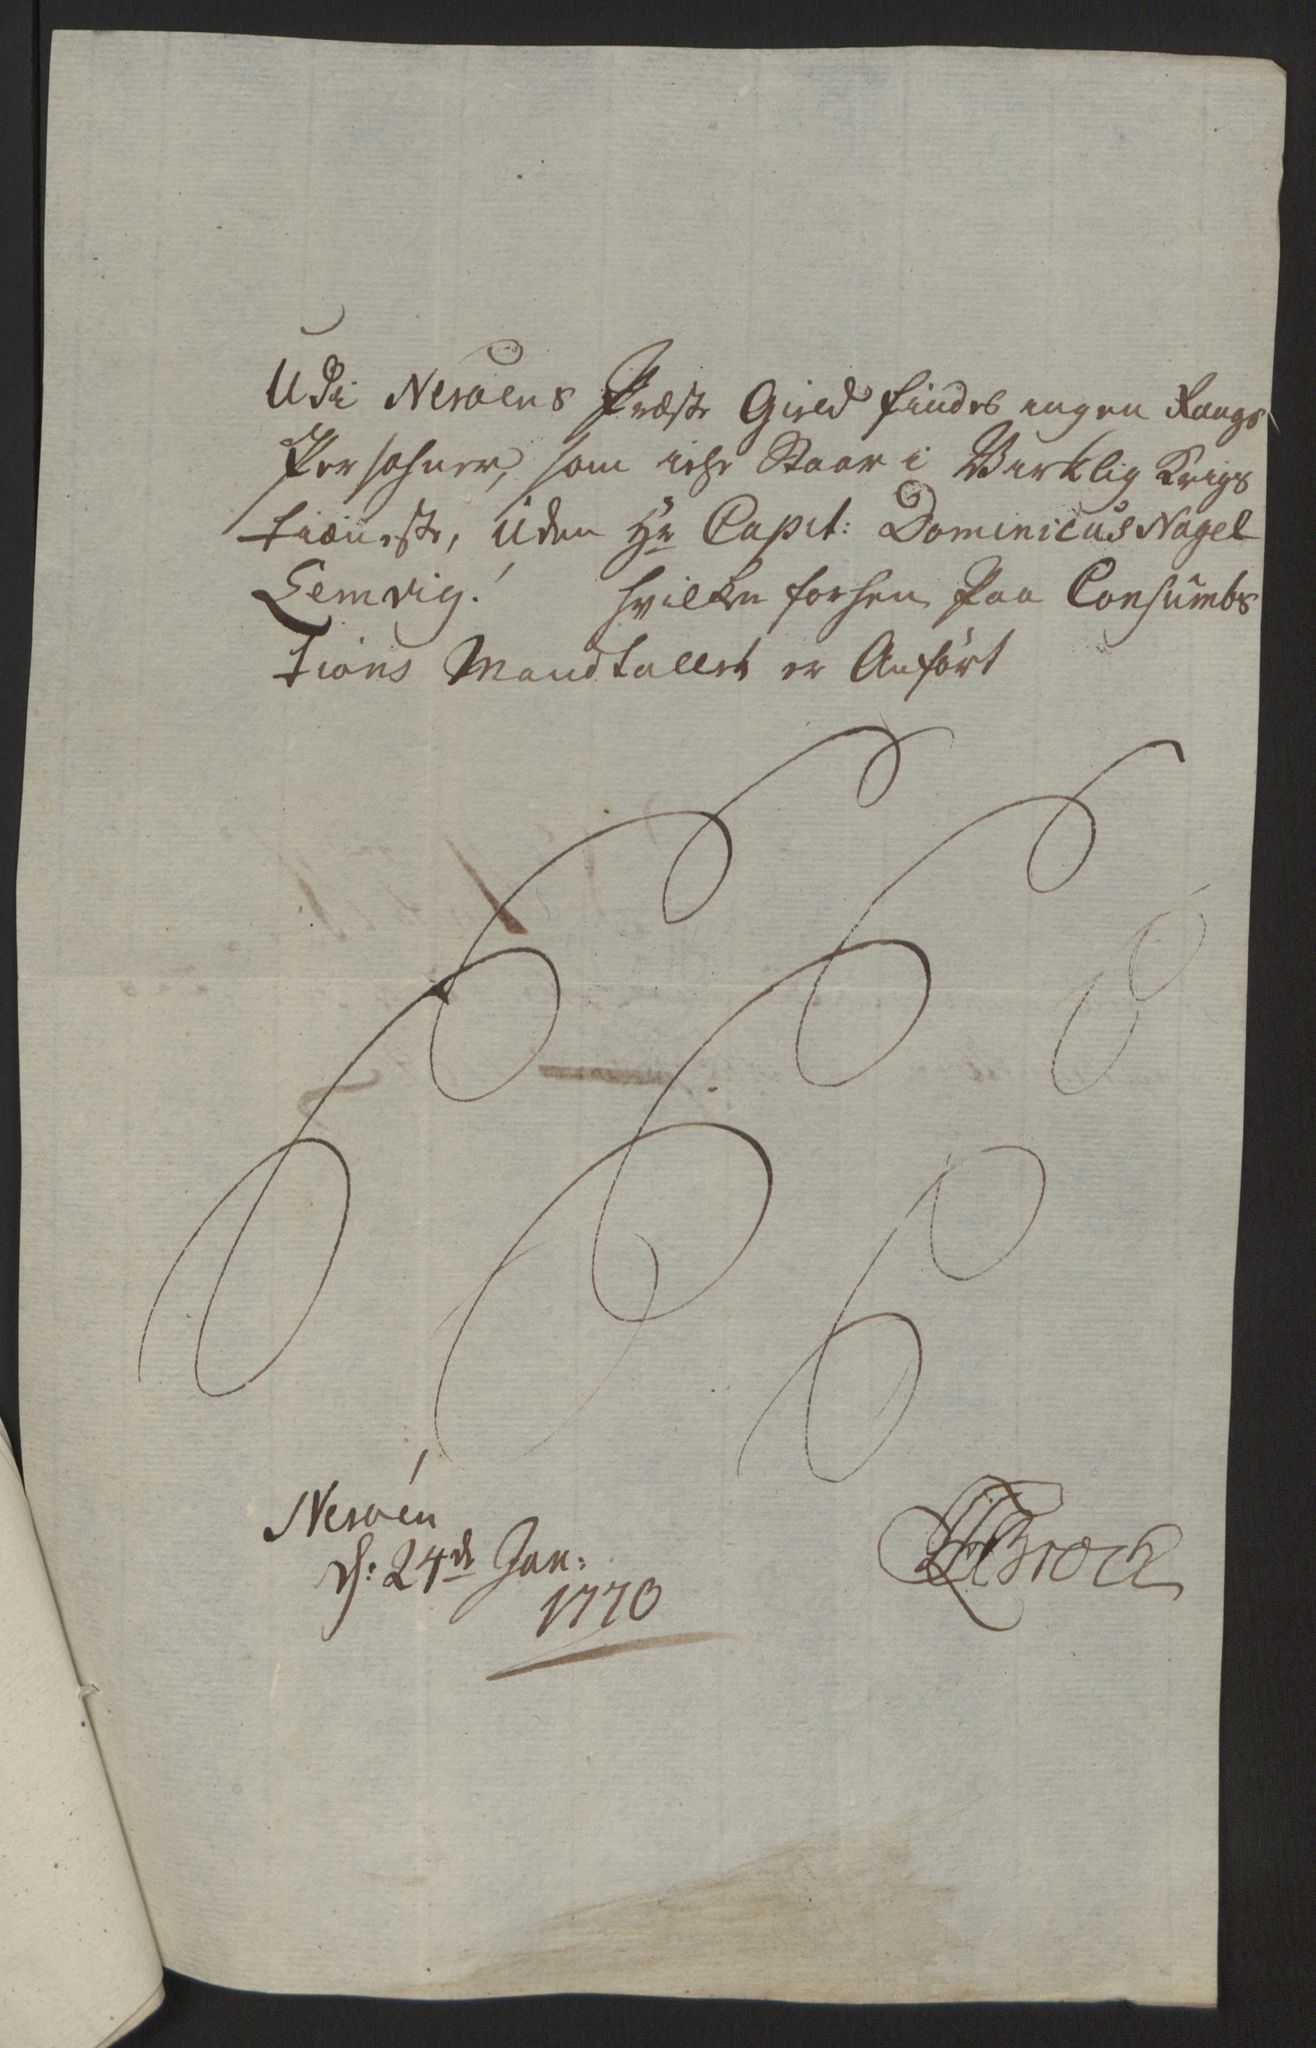 Udi Nerøens Præste Gield findes ingen Rangs
Persohner, som iche Staar i Virklig Krigs
tiæneste, Uden Hr Capit: Dominicus Nagel
Lemvig! hvilken forhen Paa Consumb
tions Mandtallet er Anført
Nerøen
d: 24de Jan:
1770
Brock